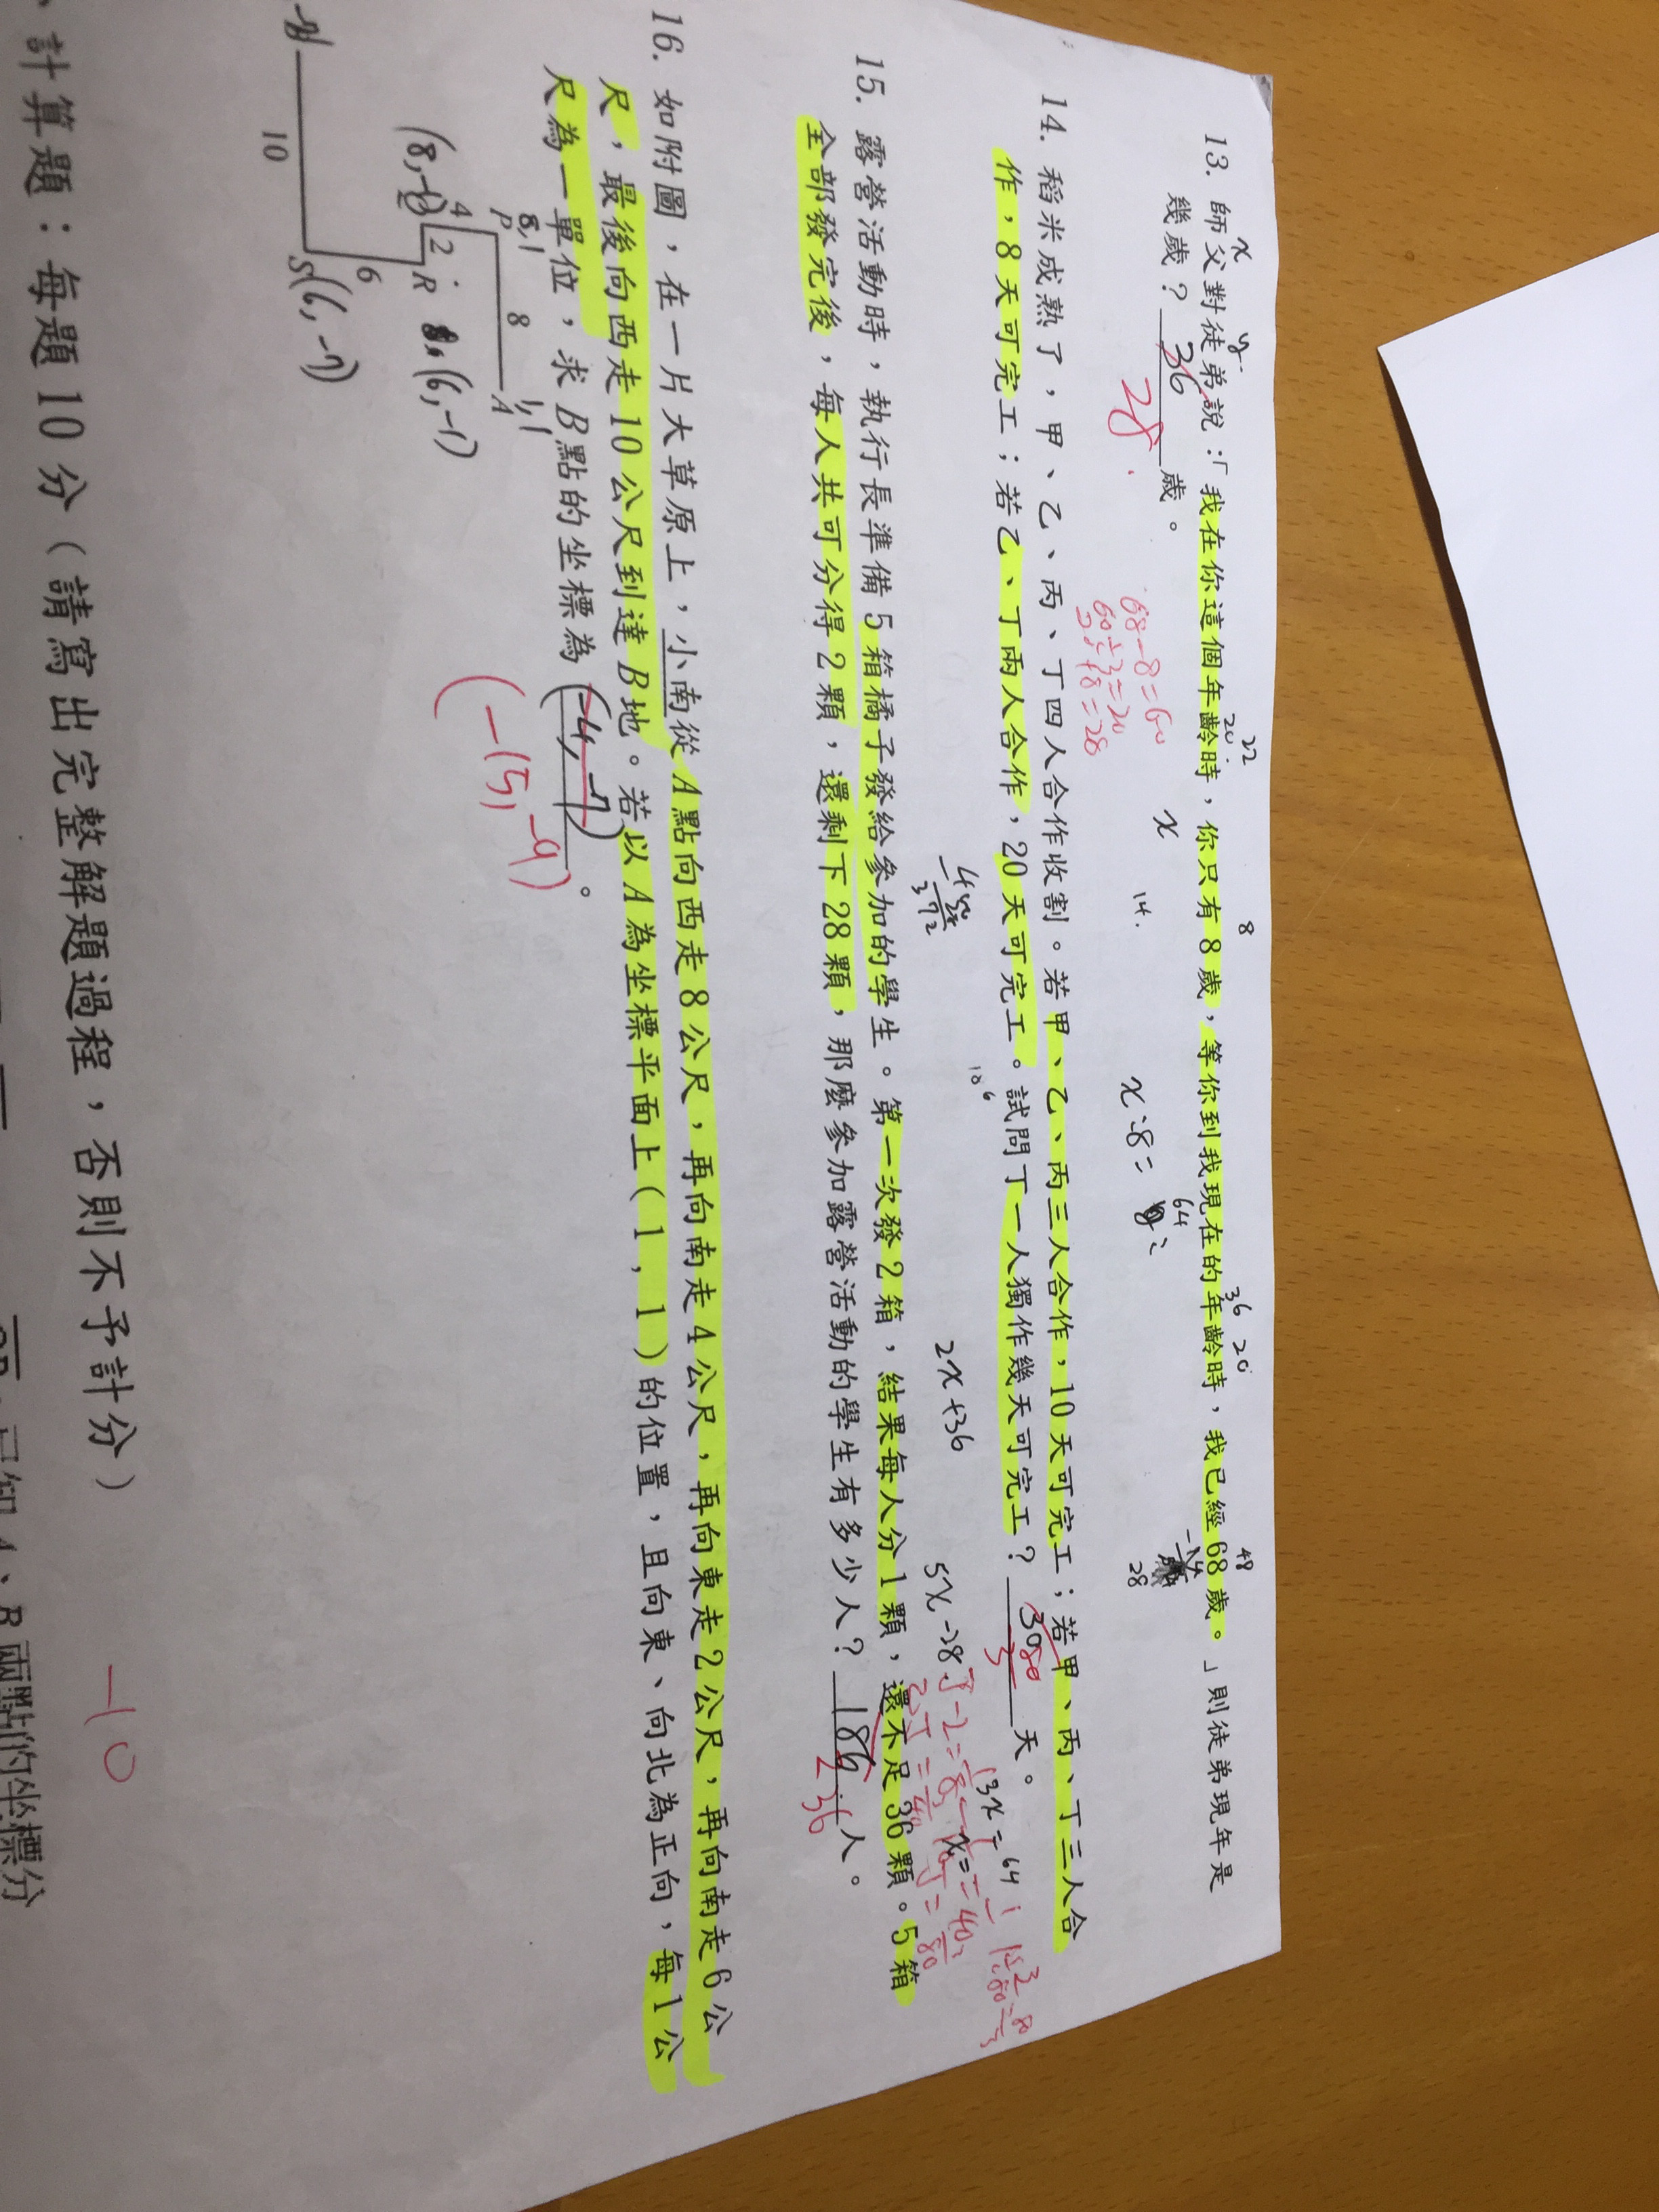 13. 師父對徒弟說:「我在你這個年齡時,你只有8歲,等你到我現在的年齡時,我已經68歲。」則徒弟現年是
幾歲? 36 歲。
28
x
y
20
22
8
36
20
48
68-8=60
60÷3=20
x
14.
x-8=
64
28
14. 稻米成熟了,甲、乙、丙、丁四人合作收割。若甲、乙、丙三人合作,10天可完工;若甲、丙、丁三人合
作,8天可完工;若乙、丁兩人合作,20天可完工。試問丁一人獨作幾天可完工? 天。
400
28
372
2x+36
5x-28
15. 露營活動時,執行長準備5箱橘子發給參加的學生。第一次發2箱,結果每人分1顆,還不足36顆。5箱
全部發完後,每人共可分得2顆,還剩下28顆,那麼參加露營活動的學生有多少人? 186 人。
236
16. 如附圖,在一片大草原上,小南從A點向西走8公尺,再向南走4公尺,再向東走2公尺,再向南走6公
尺,最後向西走10公尺到達B地。若以A為坐標平面上(1,1)的位置,且向東、向北為正向,每1公
尺為一單位,求B點的坐標為 (-4,-7) 。
(-15,-9)
8,1
P
8
1,1
A
4
2
R
(6,-1)
6
S(6,-7)
10
計算題:每題10分(請寫出完整解題過程,否則不予計分)
-10
兩點的坐標分